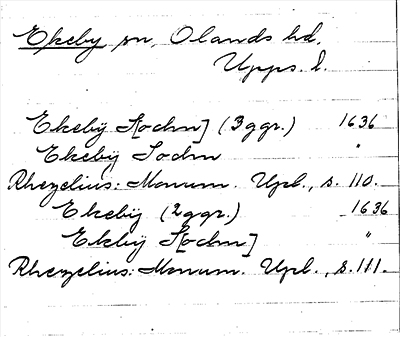 Ekeby sn, Olands hd.
Upps. l.
Ekebÿ S[ochn] (3 ggr.) 1636
Ekebÿ Sochn "
Rhezelius: Monum. Upl., s. 110.
Ekebÿ (2 ggr.) 1636
Ekebÿ S[ochn] "
Rhezelius: Monum. Upl., s. 111.